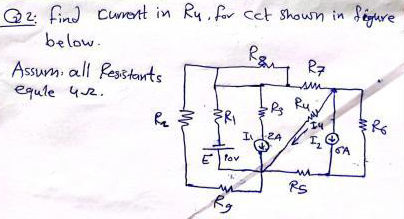 Q2: find current in R4, for cct shown in figure
below.
Assum: all Resistants
equle 4Ω.
R8
R7
R2
R1
R3
R4
I4
R6
I1
2A
I2
6A
E
10V
R5
R9